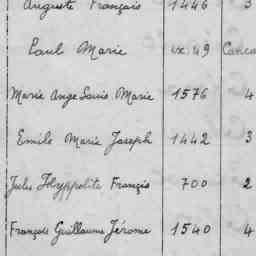 Auguste Français 1446 3
Paul Marie ex: 49 Canca
Marie Ange Louis Marie 1576 4
Emile Marie Joseph 1442 3
Jules Hyppolite Françis 700 2
François Guillaume Jérome 1540 4